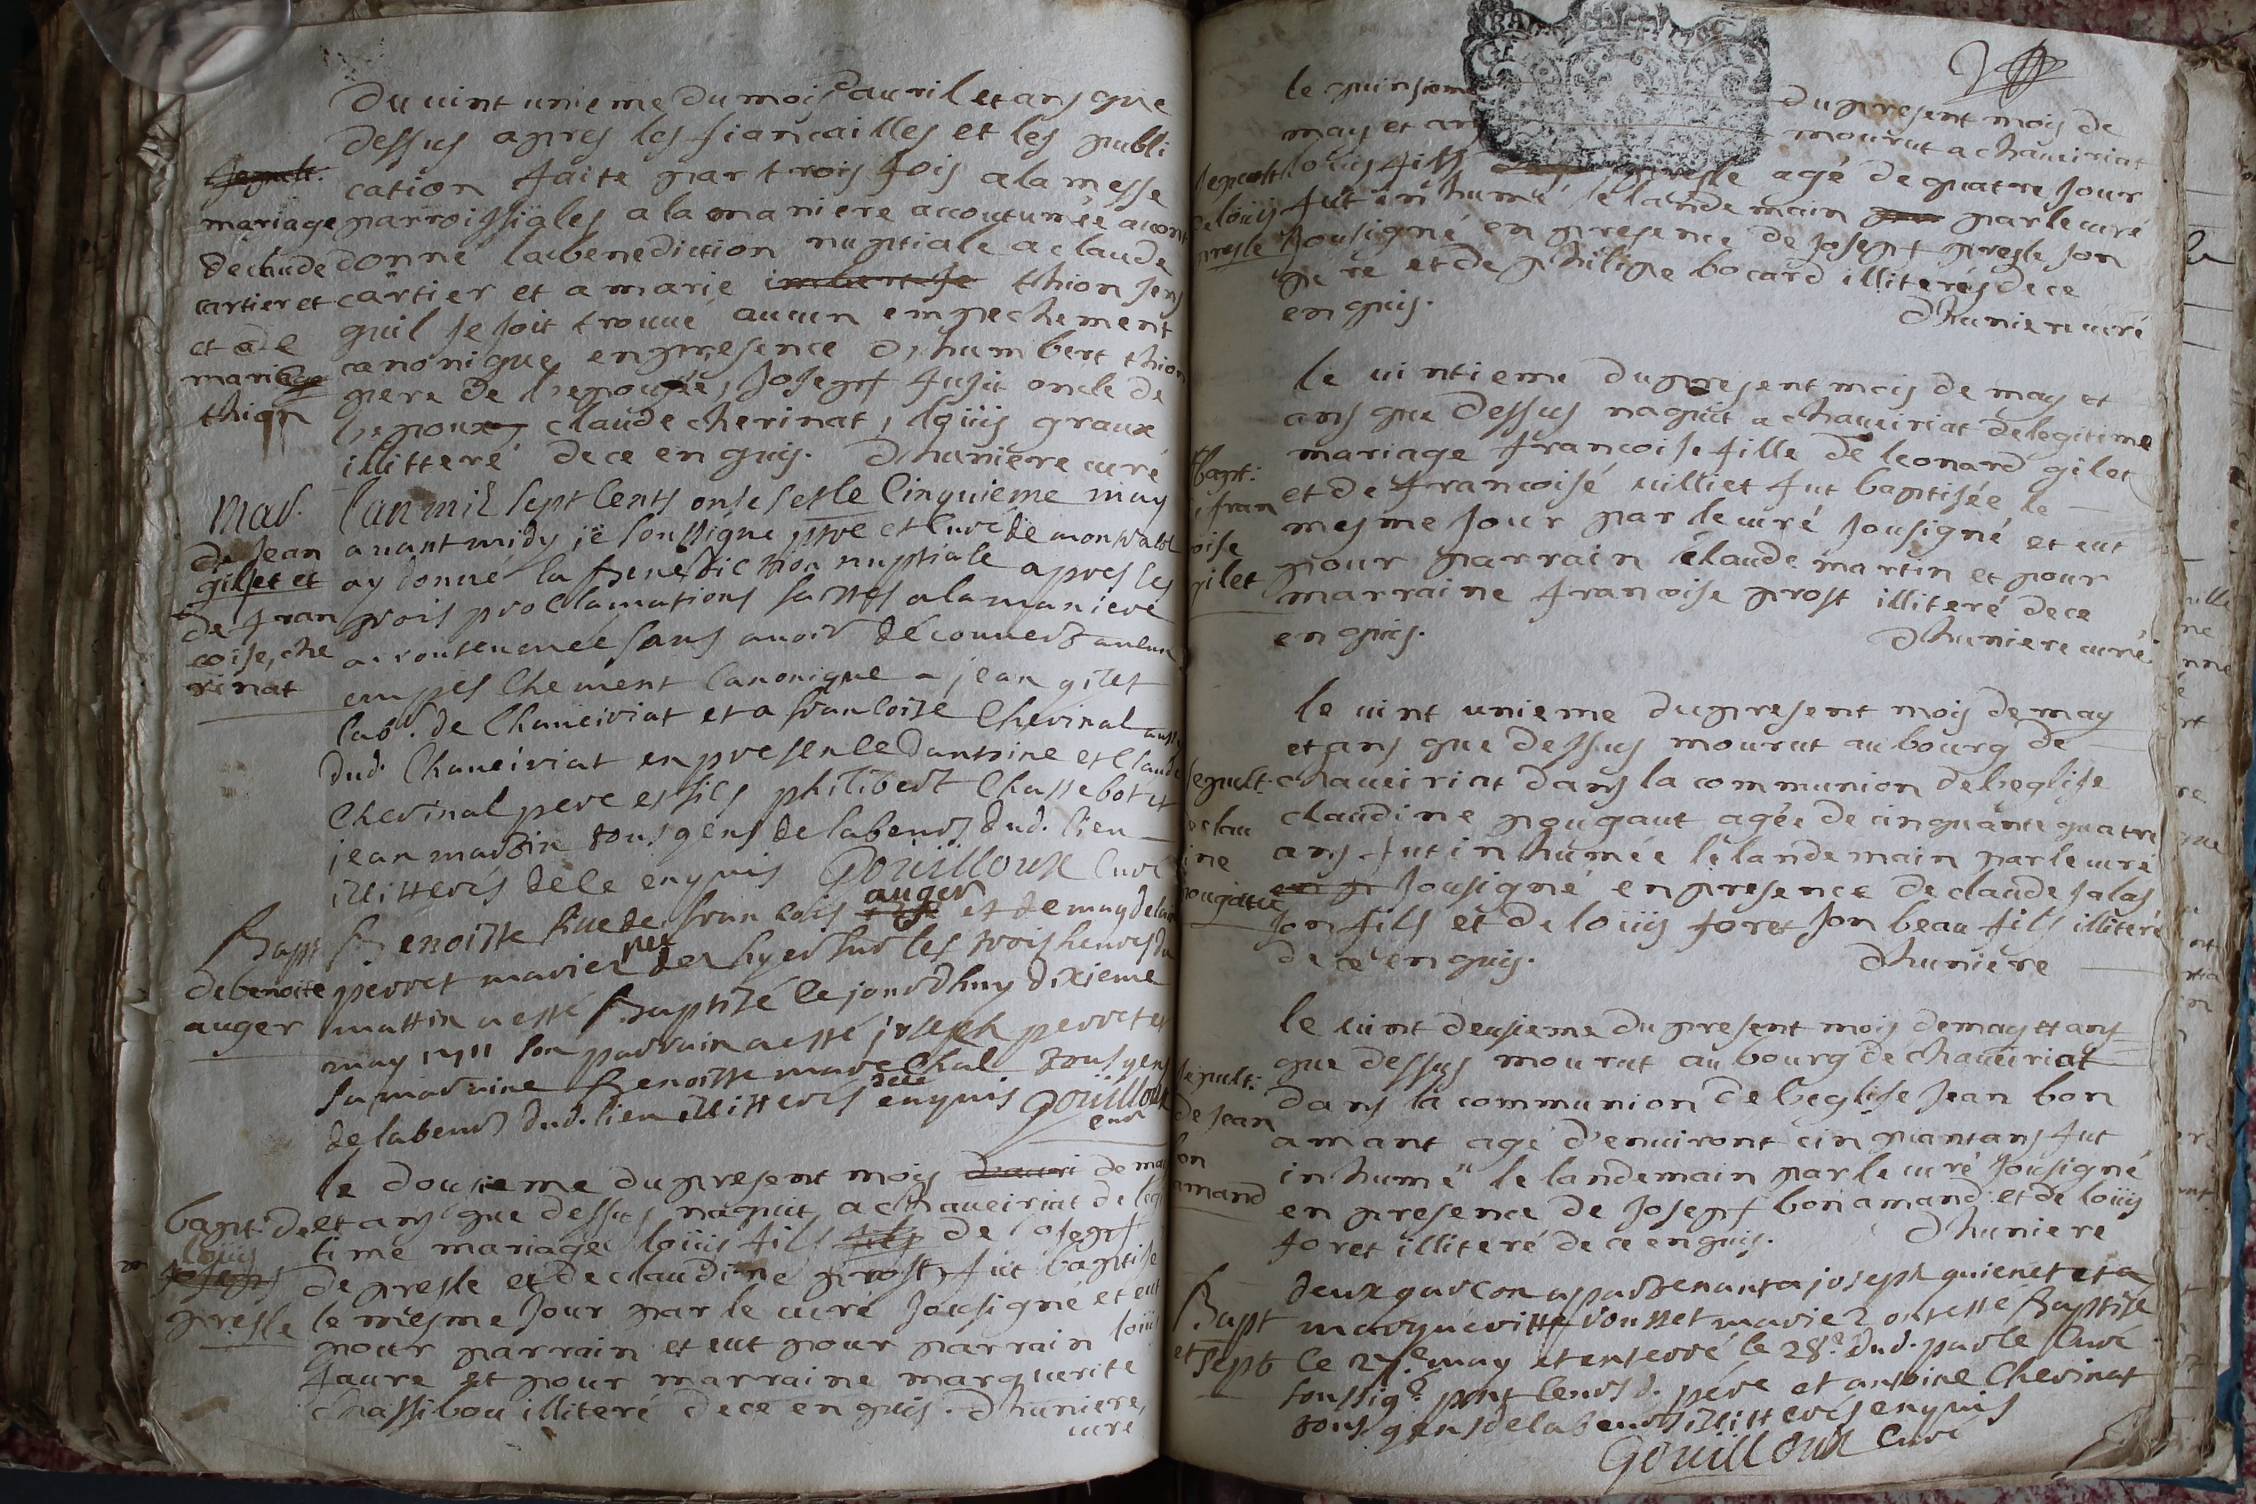 Du uint unieme du mois d'auril et ans que
dessus apres les fiancailles et les publi
cation faite par trois fois a la messe
parroissiales a la maniere accoutumée auons
donné la benediction nuptiale a claude
cartier et a marie thion sens
quil se soit trouué aucun empechement
canonique en presence d'humbert thion
pere de l'epousée, Josept oncle de
l'epoux claude cherinat, loüis graux
illitteré de ce enquis. Dhuniere curé
sepult.
mariage
de claude
cartier et
et de
marie
thion
L'an mil sept cents onse et le Cinquieme may
auant midy je soussigne pbre et Curé de
ay donné la Benediction nuptiale apres les
trois proclamations faittes a la maniere
accoutumée sans auoir découuert aucun
empeschement Canonique a jean gilet
lab.r de Chaueiriat et a francoise Cherinat aussy
dud. Chaueiriat en presence dantoine et Claude
Cherinat pere et fils philibert Chassebot et
jean martin tous gens de labeur dud. lieu
illitterés de ce enquis Gouilloux Curé
Mar.
de Jean
gilet et
de fran
coise, che
rinat
Benoitte fille de francois auger et de magdelaine
perret mariez nee hyer sur les trois heures du
mattin a esté Baptizé le jourdhuy dixieme
may 1711 son parrain a esté joseph perret et
sa marraine Benoitte marechal tous gens
de labeur dud. lieu illitterés de ce enquis Gouilloux
curé
Bapt
de benoite
auger
le dousieme du present mois de may
et ans que dessus naquit a chaueiriat de legi
time mariage loüis fils de Josept
de presle et de claudine prost fut baptisé
le mesme Jour par le curé sousigné et eut
pour parrain et eut pour parrain loüis
faure et pour marraine marguerite
chassibou illiteré de ce enquis. Dhuniere,
curé
bapt. de
loüis
presle
le quinsieme du present mois de
may et ans mourut a chaueiriat
loüis fils presle agé de quatre Jour
fut inhumé le landemain par le curé
sousigné en presence de Josept presle son
pere et de philipe bocard illiterés de ce
enquis.
Dhuniere curé
sepult
de loüis
presle
le uintieme du present mois de may et
ans que dessus naquit a chaueiriat de legitime
mariage francoise fille de leonard gilet
et de francoise uilliet fut baptisée le
mesme Jour par le curé sousigné et eut
pour parrain claude martin et pour
marraine francoise prost illiteré de ce
enquis.
Dhuniere curé
Bapt:
fran
oise
gilet
le uint unieme du present mois de may
et ans que dessus mourut au bourg de
chaueiriat dans la communion de l'eglise
claudine pougaut agée de cinquante quatre
ans fut inhumée le landemain par le curé
sousigné en presence de claude salas
son fils et de loüis foret son beau fils illiteré
de ce enquis.
Dhuniere
sepult:
de clau
ine
pougaut
le uint deusieme du present mois de may et ans
que dessus mourut au bourg de chaueiriat
dans la communion de l'eglise Jean bon
amant agé d'enuiront cinquant ans fut
inhumé le landemain par le curé sousigné
en presence de Josept bonamand et de loüis
foret illiteré de ce enquis.
Dhuniere
sepult:
de Jean
bon
amand
deux garcon apartenant a joseph quienet et a
margueritte mariez ont esté Baptisé
le 27e may et enterré le 28e dud. par le Curé
soussig.é p.nt leursd. pere et antoine Cherinat
tous gens de labeur illitterés enquis
Gouilloux Curé
Bapt
et
sept